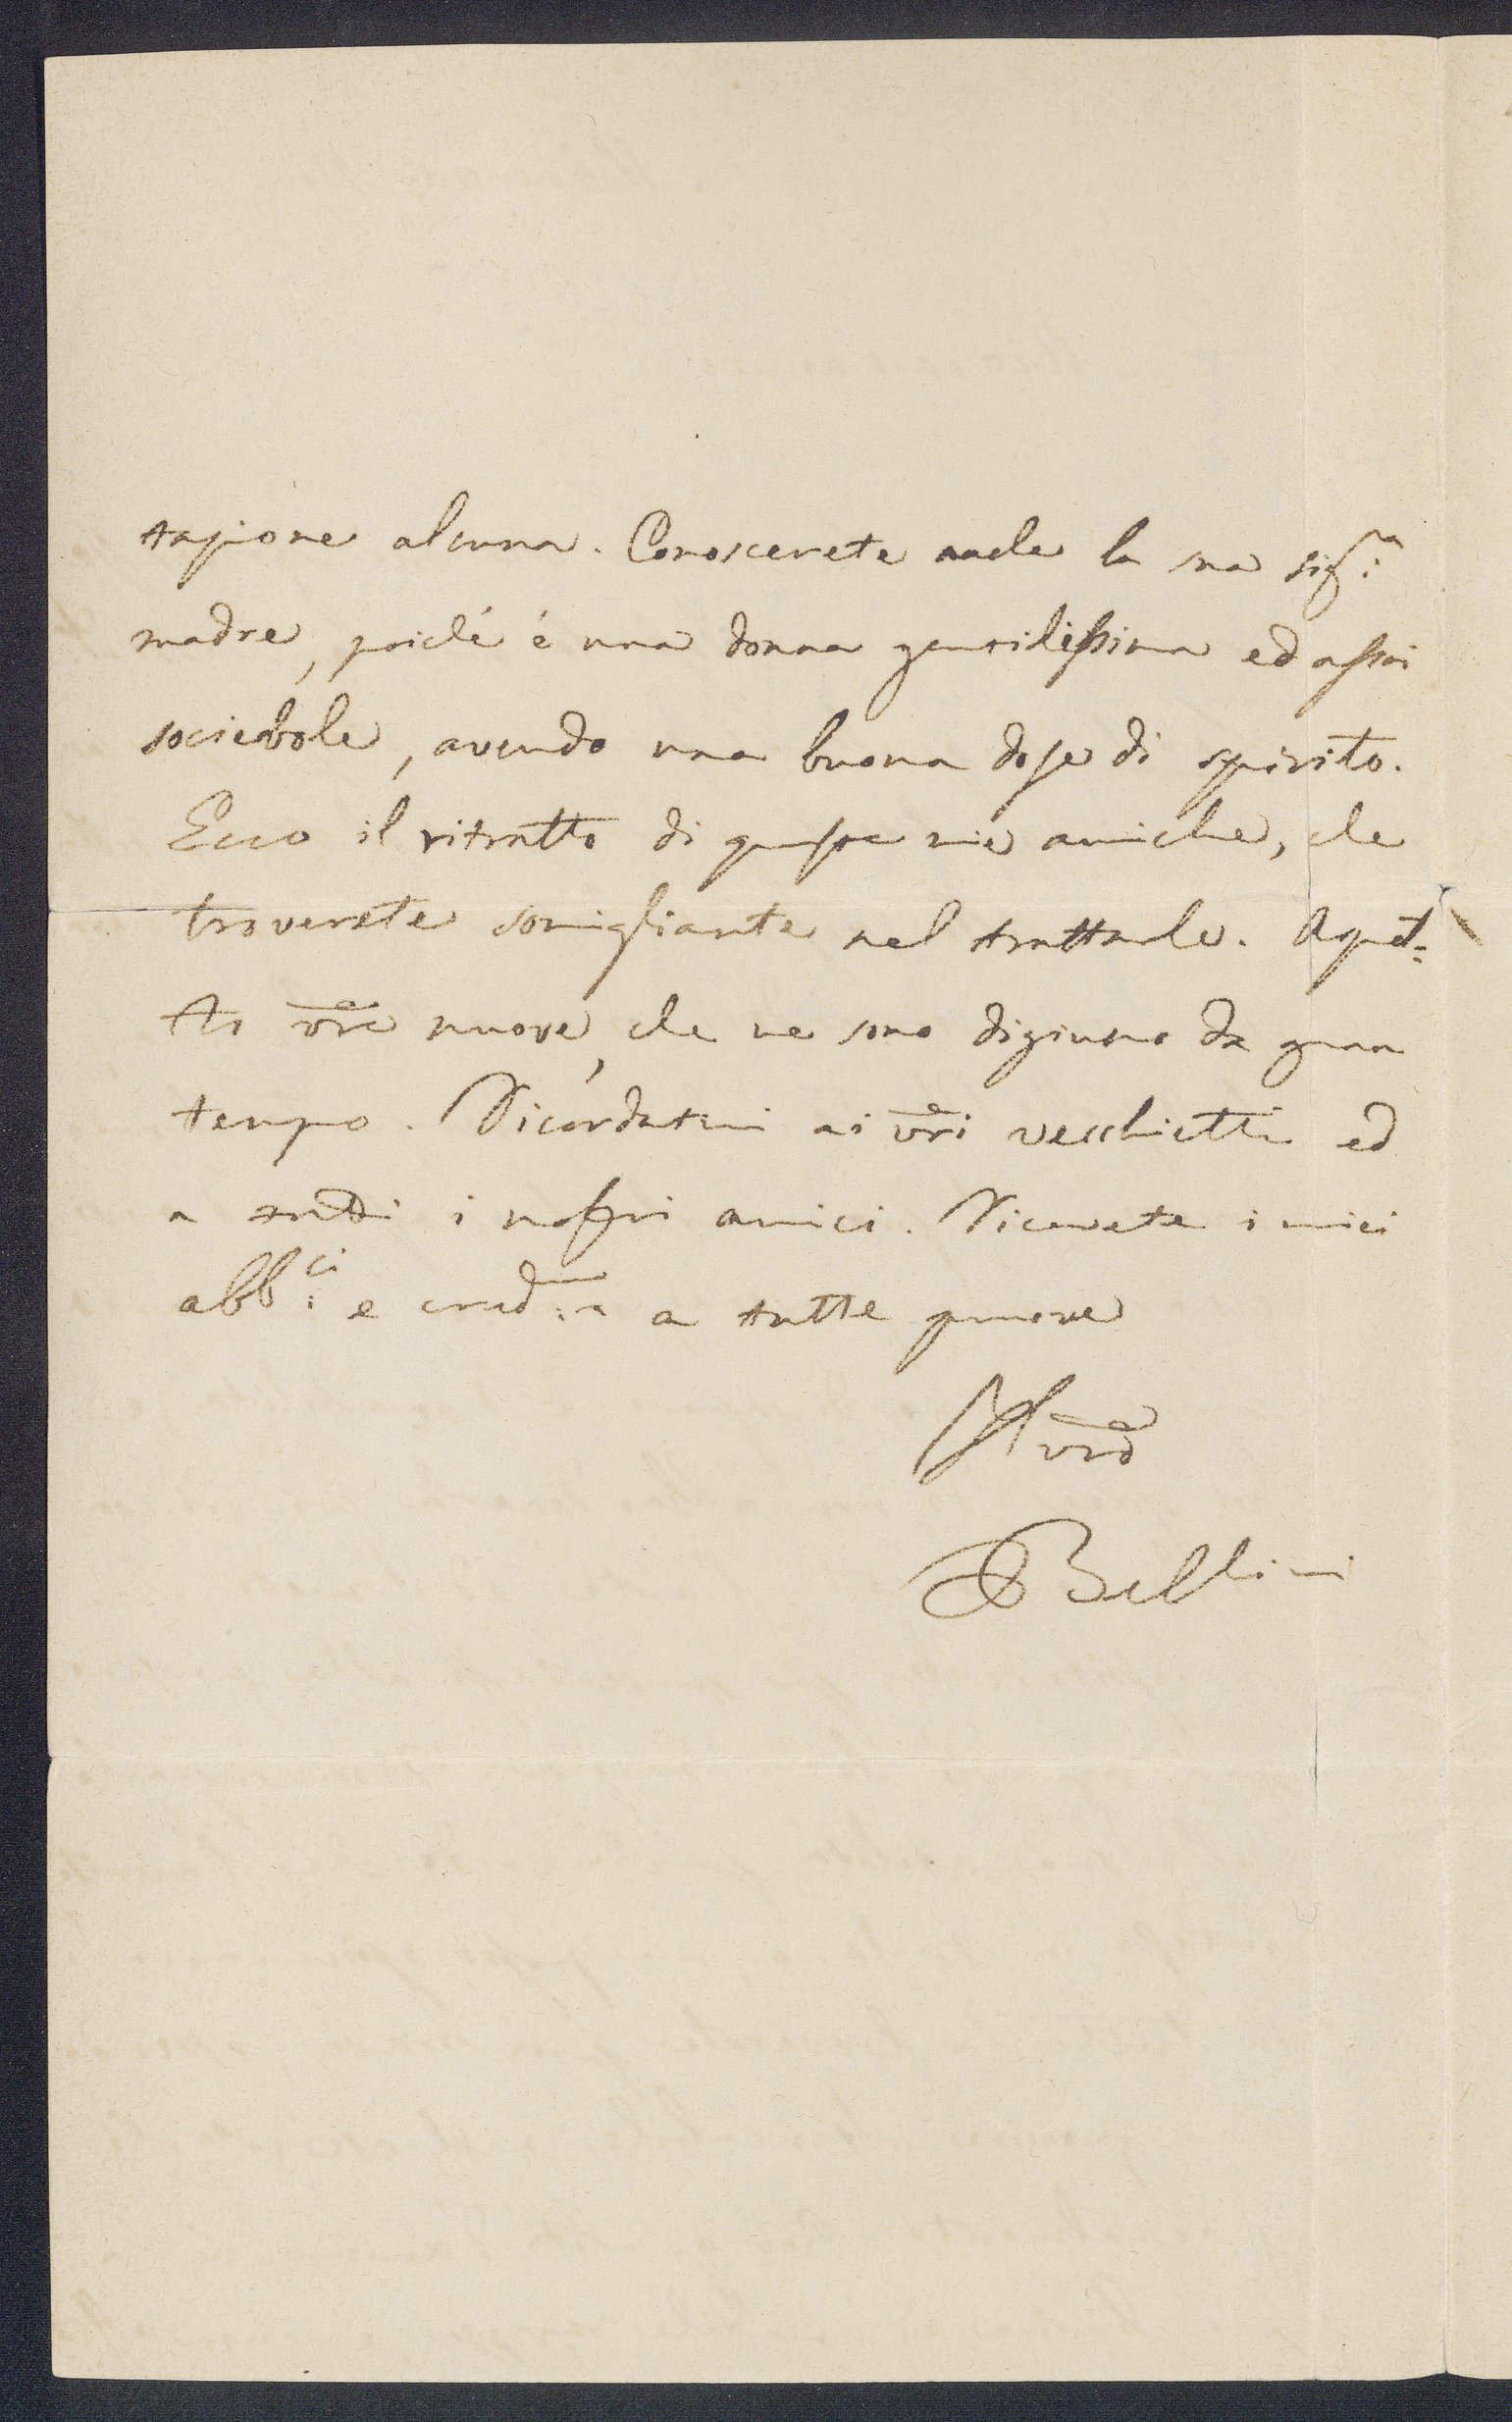 tazione alcuna. Conoscerete anche la sua sig:ra
madre, poiché é una donna gentilissima ed assai
socievole, avendo una buona dose di spirito.
Ecco il ritratto di queste mie amiche, che
troverete somigliante nel trattarle. Aspet=
to vre nuove, che ne sono digiuno da gran
tempo. Ricordatemi ai vri vecchietti ed
a tutti i nostri amici. Ricevete i miei
abb:ci e cred:mi a tutte pruove
Il vro
Bellini